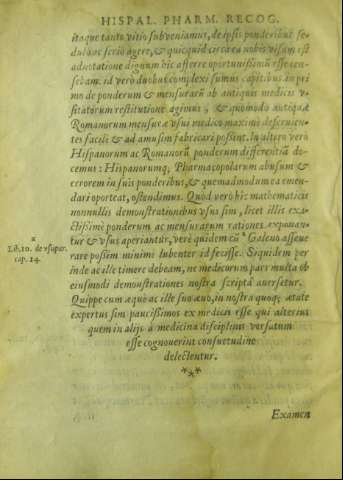 HISPAL. PHARM. RECOG.
itaque tanto vitio subveniamus, de ipsis ponderibus se-
dulo ac serio agere, & quicquid circa ea nobis visum est
adnotatione dignum hic afferre oportunissimũ esse cen-
sebam. id verò duobus complexi sumus capitibus. in pri
mo de ponderum & mensurarũ ab antiquis medicis v-
sitatorum restitutione agimus, & quomodo antiquæ
Romanorum mensuræ vsui medico maximè deservien-
tes facilè & ad amusim fabricari possint. In altero verò
Hispanorum ac Romanorũ ponderum differentiã do-
cemus: Hispanorumq; Pharmacopolarum abusum &
errorem in suis ponderibus, & quemadmodum ea emen
dari oporteat, ostendimus. Quod verò hic mathematicis
nonnullis demonstrationibus vsus sim, licet illis exa-
ctissimè ponderum ac mensurarum rationes exponan-
tur & vsus aperiantur, verè quidem cũ * Galeno asseue
rare possim minimè lubenter id fecisse. Siquidem per
inde ac ille timere debeam, ne medicorum pars multa ob
eiusmodi demonstrationes nostra scripta auersetur.
Quippe cum æquo ac ille suo æuo, in nostra quoq; ætate
expertus sim paucissimos ex medicis esse qui alterius
quem in alijs a medicina disciplinis versatum
esse cognouerint consuetudine
delectentur.
***
*
Lib. 10. de vsu par.
cap. 14.
Examen